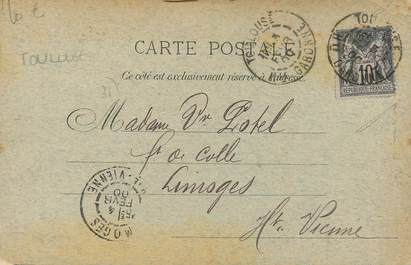 Toulouse
CARTE POSTALE
Ce côté est exclusivement réservé à l'adresse
TOULOUSE
HTE GARONNE
10
RÉPUBLIQUE FRANÇAISE
Madame Vve Potel
Limoges
Hte Vienne
LIMOGES
HTE-VIENNE
4
FEVR
00